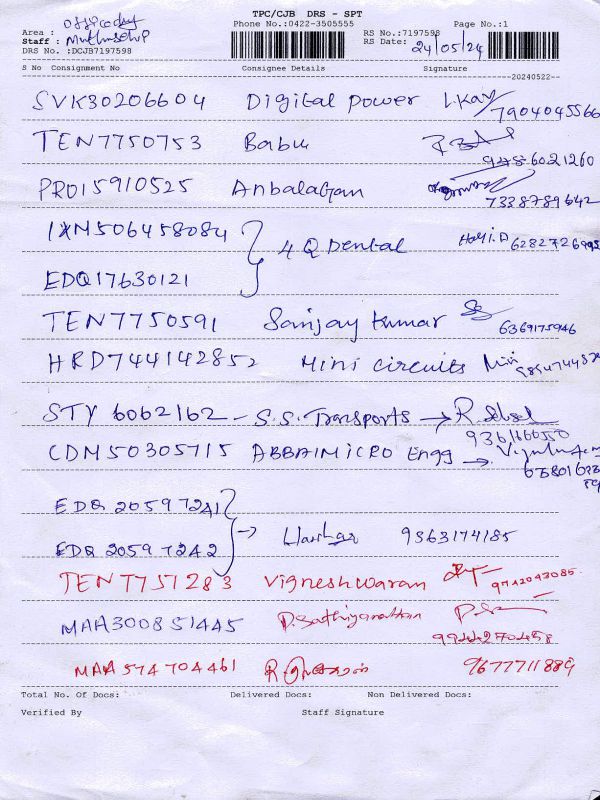 TPC/CJB DRS - SPT
Phone No.:0422-3505555
RS No.:7197598
Page No.:1
Area :
Staff :
DRS No. :DCJB7197598
RS Date: 24/05/24
S No Consignment No Consignee Details Signature
20240522
SVK30206604 Digital Power L.Kav
7904045566
TEN7750753 Babu
9486021260
PRO15910525 Anbalagan
7338789642
IXM506458084
4 Q Dental Hari.D
EDQ17630121
TEN7750591 Sanjay Kumar
6369175946
HRD744142852 Mini circuits Mini
STY 6062162 - S.S. Transports → R
CDM50305715 ABBAIMICRO Engg →
EDQ 20597241
→ Harihar 9363174185
EDQ 20597242
TEN7751283 Vigneshwaran
9742043085
MAA300851445 P.Sathiyanathan
9944270458
MAA574704461 9677711889
Total No. Of Docs: Delivered Docs: Non Delivered Docs:
Verified By Staff Signature